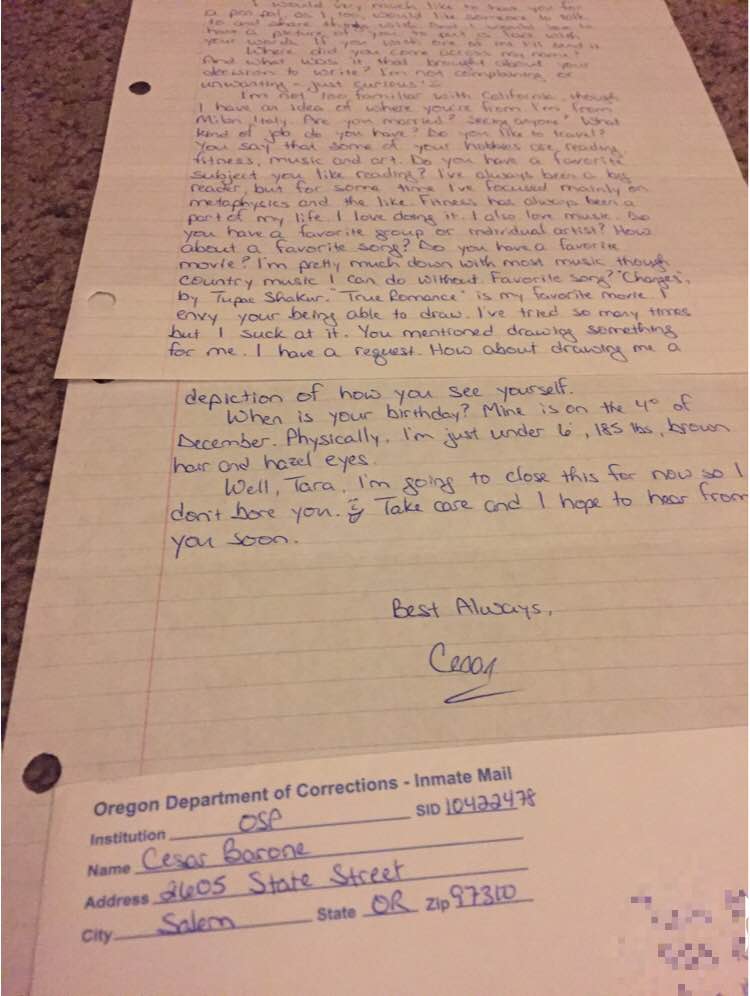 I would very much like to have you for
a pen pal, as I, too, would like someone to talk
to and share things with. And I would like to
have a picture of you to put a face with
your words. If you wish one of me I'll send it.
Where did you come across my name?
And what was it that brought about your
decision to write? I'm not complaining or
unwanting - just curious!
I'm not too familiar with California, though
I have an idea of where you're from. I'm from
Milan, Italy. Are you married? Seeing anyone? What
kind of job do you have? Do you like to travel?
You say that some of your hobbies are, reading,
fitness, music and art. Do you have a favorite
subject you like reading? I've always been a big
reader, but for some time I've focused mainly on
metaphysics and the like. Fitness has always been a
part of my life. I love doing it. I also love music. Do
you have a favorite group or individual artist? How
about a favorite song? Do you have a favorite
movie? I'm pretty much down with most music though
country music I can do without. Favorite song? "Changes",
by Tupac Shakur. "True Romance" is my favorite movie. I
envy your being able to draw. I've tried so many times
but I suck at it. You mentioned drawing something
for me. I have a request. How about drawing me a
depiction of how you see yourself.
When is your birthday? Mine is on the 4º of
December. Physically, I'm just under 6', 185 lbs, brown
hair and hazel eyes.
Well, Tara, I'm going to close this for now so I
don't bore you. Take care and I hope to hear from
you soon.
Best Always,
Cesar
Oregon Department of Corrections - Inmate Mail
Institution OSP SID 10422478
Name Cesar Barone
Address 2605 State Street
City Salem State OR Zip 97310